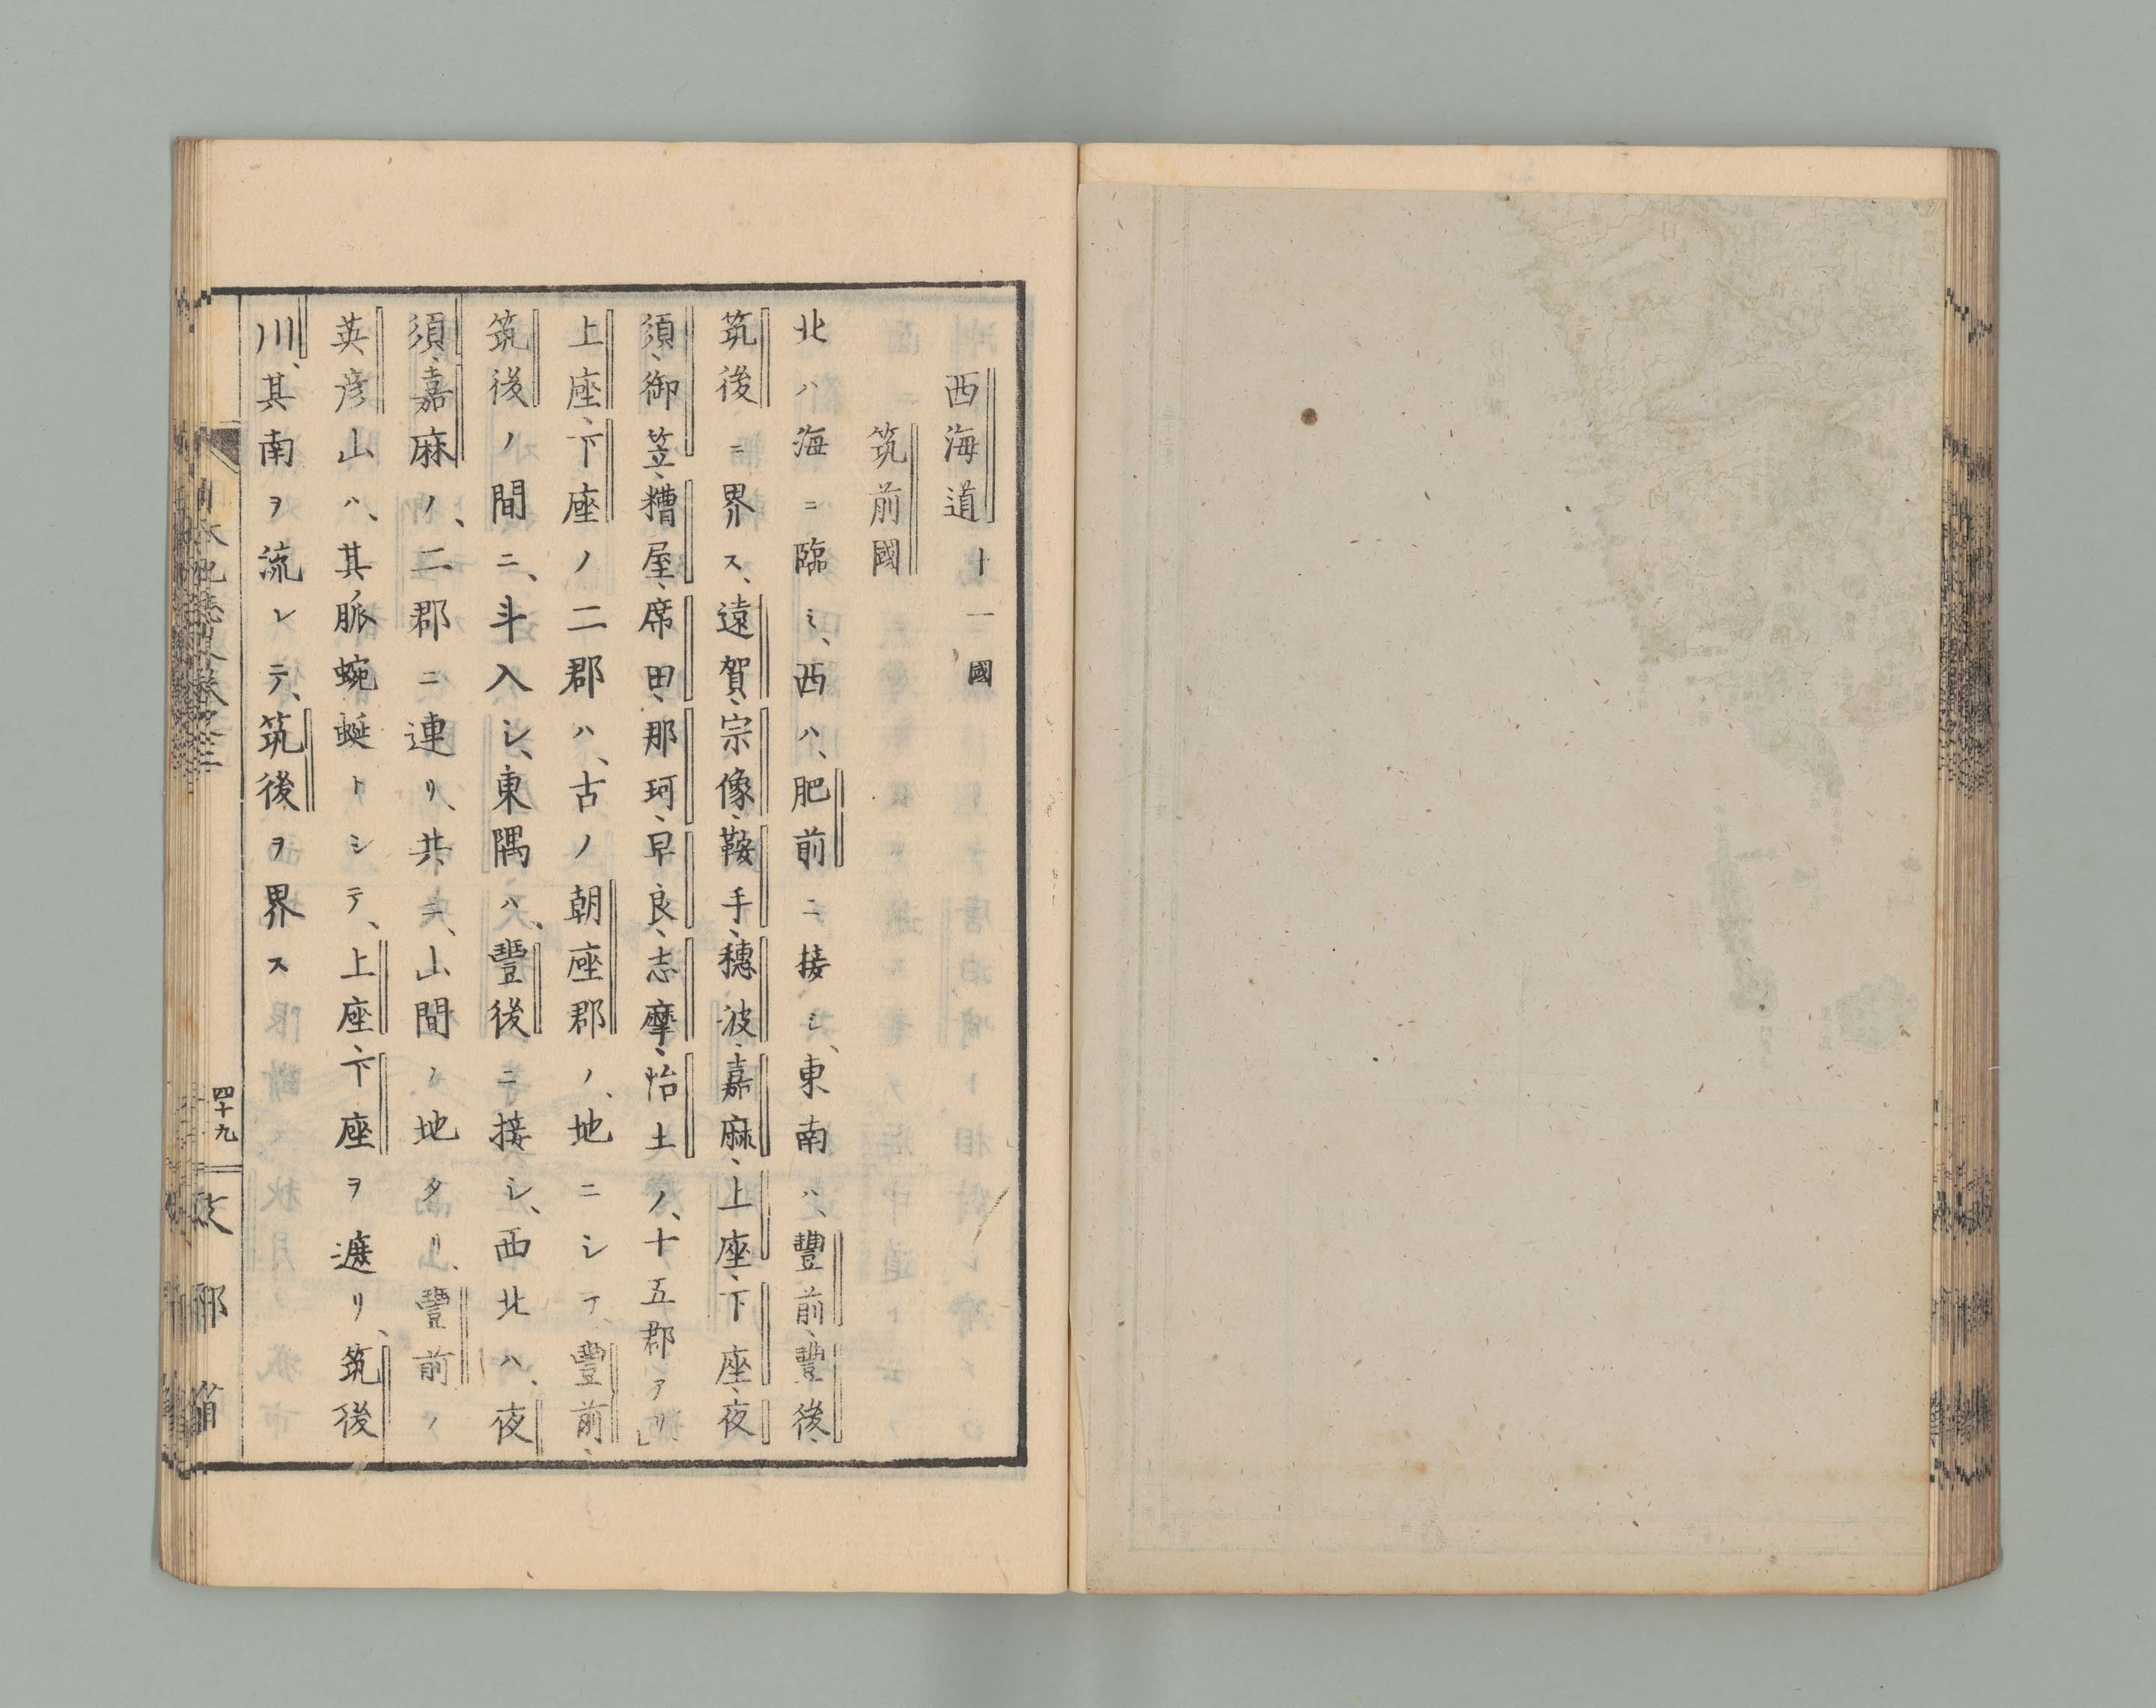 西海道十一國
筑前國
北ハ海ニ臨ミ、西ハ、肥前ニ接シ、東南ハ、豐前、豐後、
筑後ニ界ス、遠賀、宗像、鞍手、穗波、嘉麻、上座、下座、夜
須、御笠、糟屋、席田、那珂、早良、志摩、怡土ノ、十五郡アリ」
上座、下座ノ二郡ハ、古ノ朝座郡ノ、地ニシテ、豐前、
筑後ノ間ニ、斗入シ、東隅ハ、豐後ニ接シ、西北ハ、夜
須、嘉麻ノ、二郡ニ連リ、共ニ、山間ノ地タリ、豐前ノ
英彦山ハ、其脈蜿蜒トシテ、上座、下座ヲ遮リ、筑後
川、其南ヲ流レテ、筑後ヲ界ス
四十九